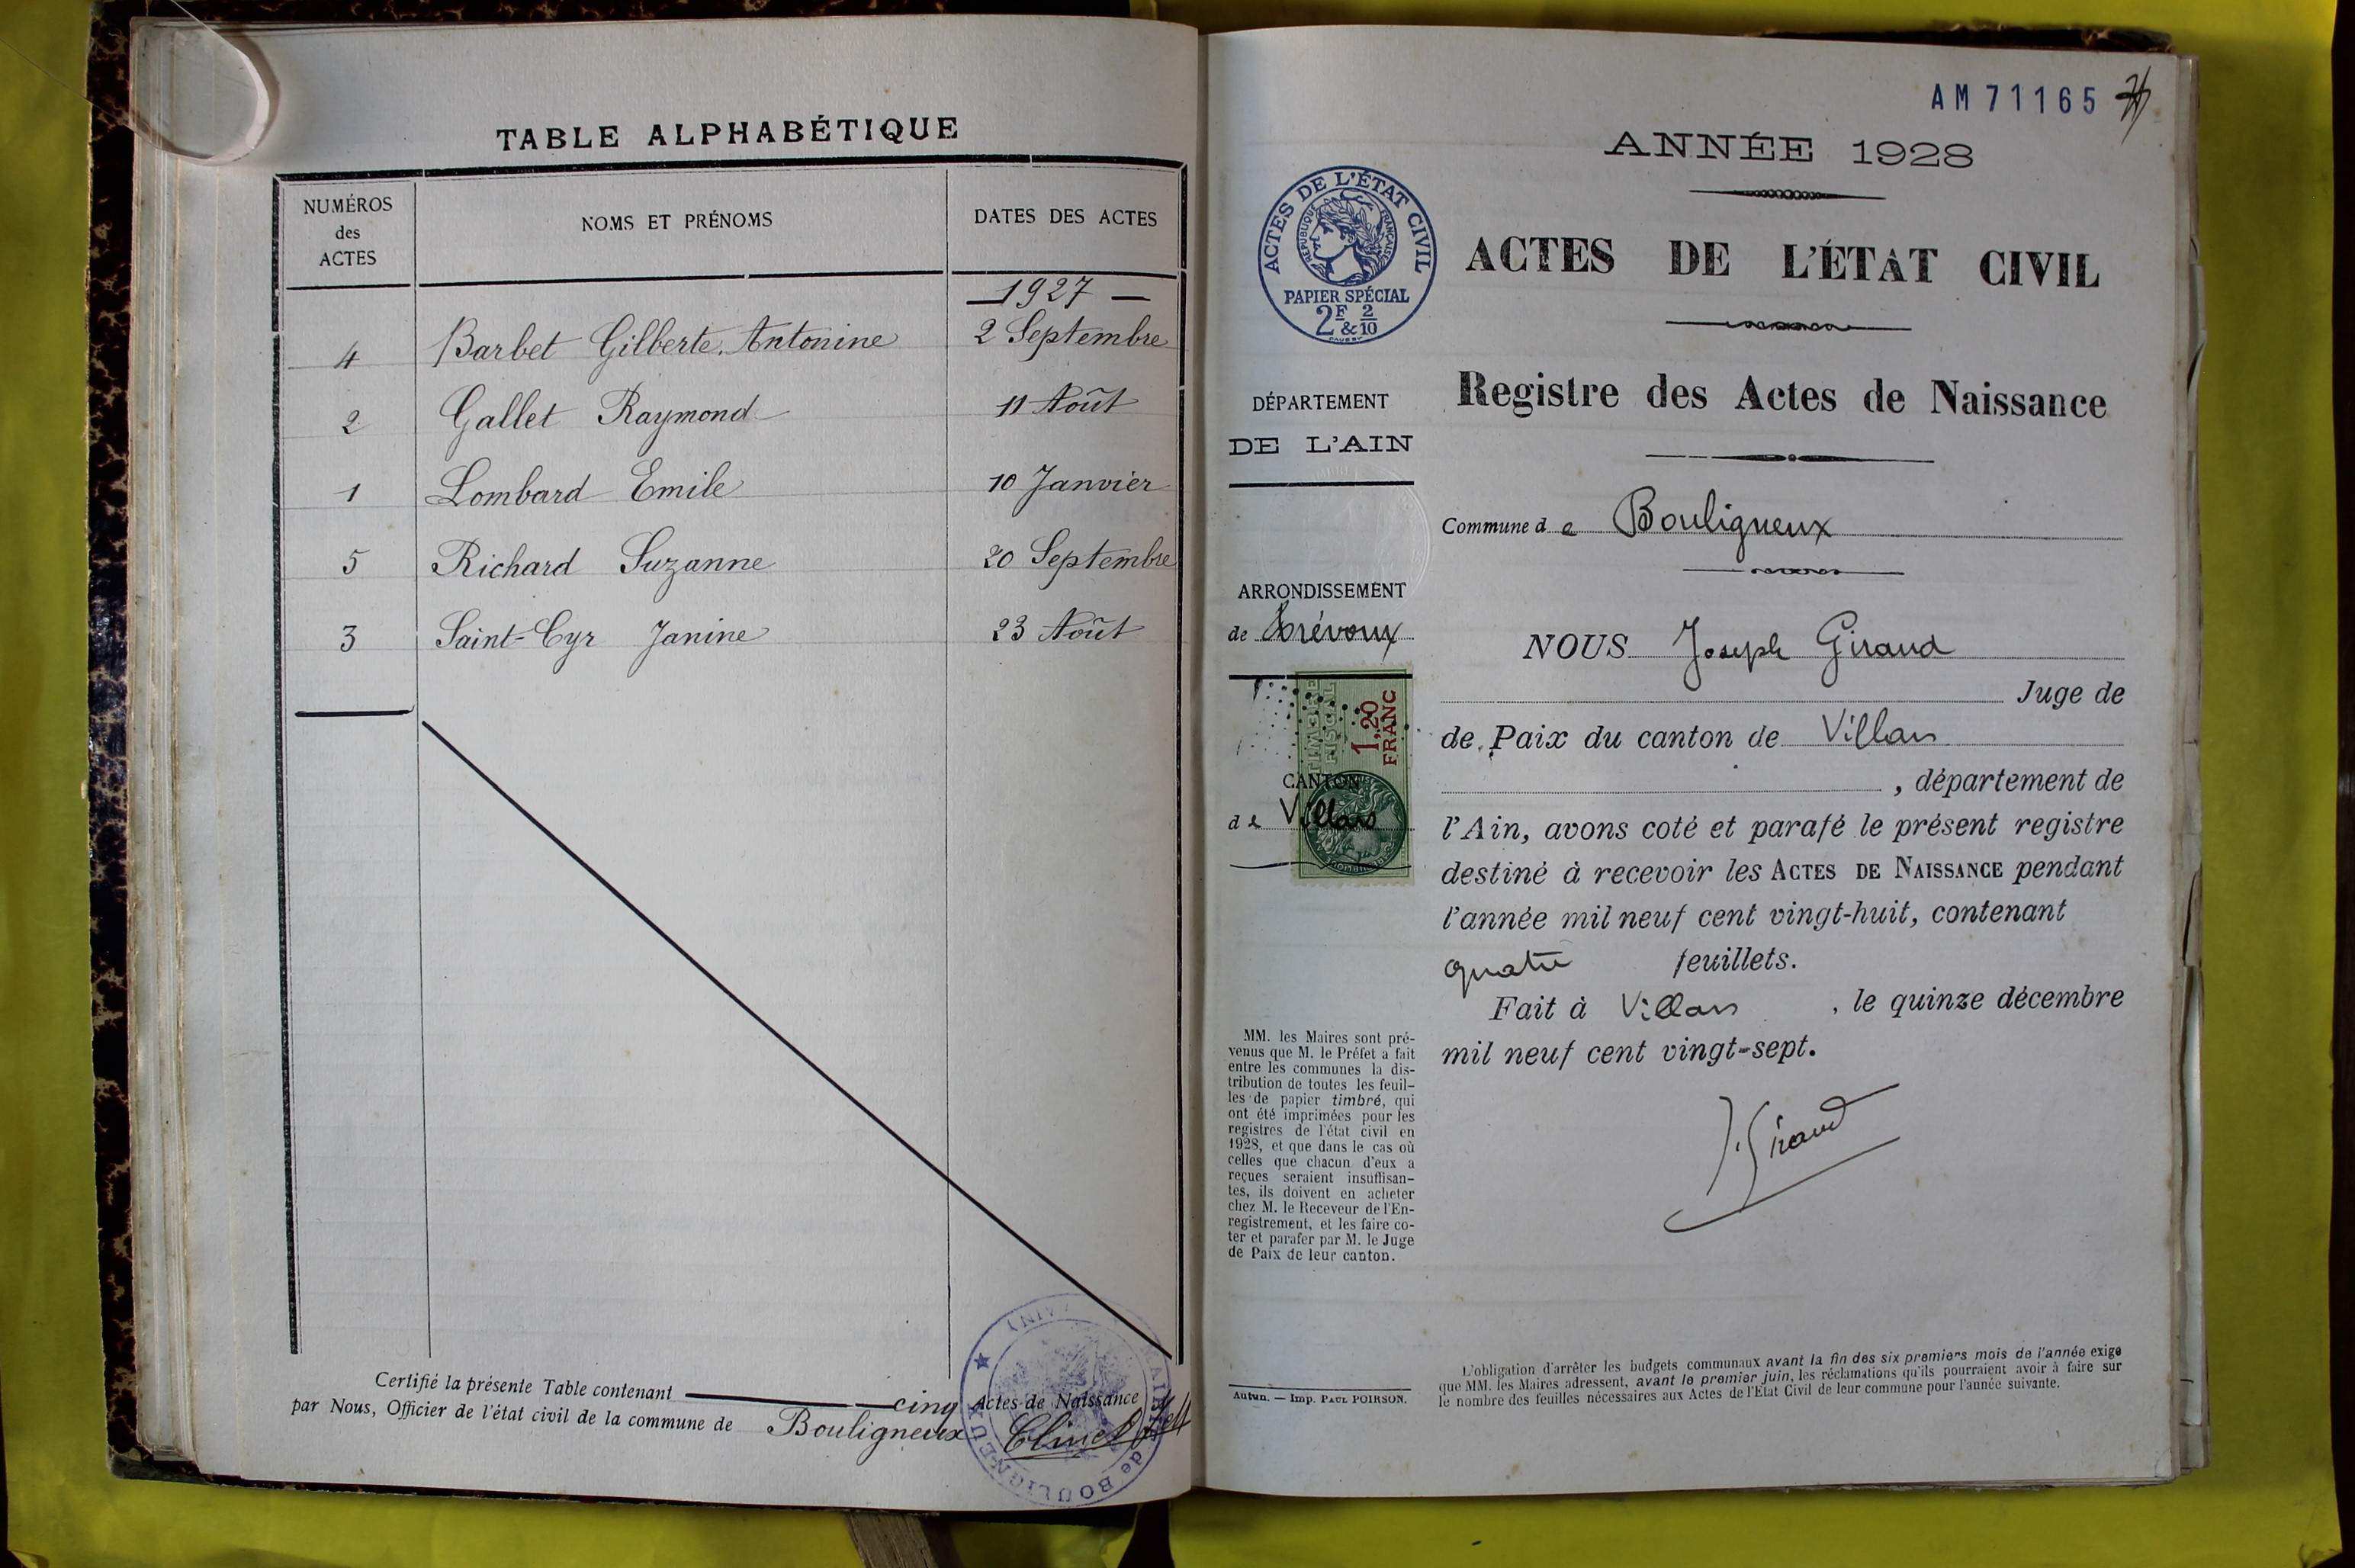 TABLE ALPHABÉTIQUE
NUMÉROS
des
ACTES
NOMS ET PRÉNOMS
DATES DES ACTES
1927
4 Barbet Gilberte, Antonine 2 Septembre
2 Gallet Raymond 11 Août
1 Lombard Emile 10 Janvier
5 Richard Suzanne 20 Septembre
3 Saint-Cyr Janine 23 Août
Certifié la présente Table contenant cinq Actes de Naissance
par Nous, Officier de l'état civil de la commune de Bouligneux
MAIRIE de BOULIGNEUX ★ (AIN)
AM 71165
ANNÉE 1928
ACTES DE L'ÉTAT CIVIL
RÉPUBLIQUE FRANÇAISE
PAPIER SPÉCIAL
2F & 2/10
ACTES DE L'ÉTAT CIVIL
Registre des Actes de Naissance
DÉPARTEMENT
DE L'AIN
Commune de Bouligneux
ARRONDISSEMENT
de Trévoux
TIMBRE
FISCAL
1,20
FRANC
CANTON
de Villars
NOUS Joseph Giraud
Juge de
de Paix du canton de Villars
, département de
l'Ain, avons coté et parafé le présent registre
destiné à recevoir les ACTES DE NAISSANCE pendant
l'année mil neuf cent vingt-huit, contenant
quatre feuillets.
Fait à Villars, le quinze décembre
mil neuf cent vingt-sept.
J. Giraud
MM. les Maires sont pré-
venus que M. le Préfet a fait
entre les communes la dis-
tribution de toutes les feuil-
les de papier timbré, qui
ont été imprimées pour les
registres de l'état civil en
1928, et que dans le cas où
celles que chacun d'eux a
reçues seraient insuffisan-
tes, ils doivent en acheter
chez M. le Receveur de l'En-
registrement, et les faire co-
ter et parafer par M. le Juge
de Paix de leur canton.
Autun. — Imp. PAUL POIRSON.
L'obligation d'arrêter les budgets communaux avant la fin des six premiers mois de l'année exige
que MM. les Maires adressent, avant le premier juin, les réclamations qu'ils pourraient avoir à faire sur
le nombre des feuilles nécessaires aux Actes de l'Etat Civil de leur commune pour l'année suivante.